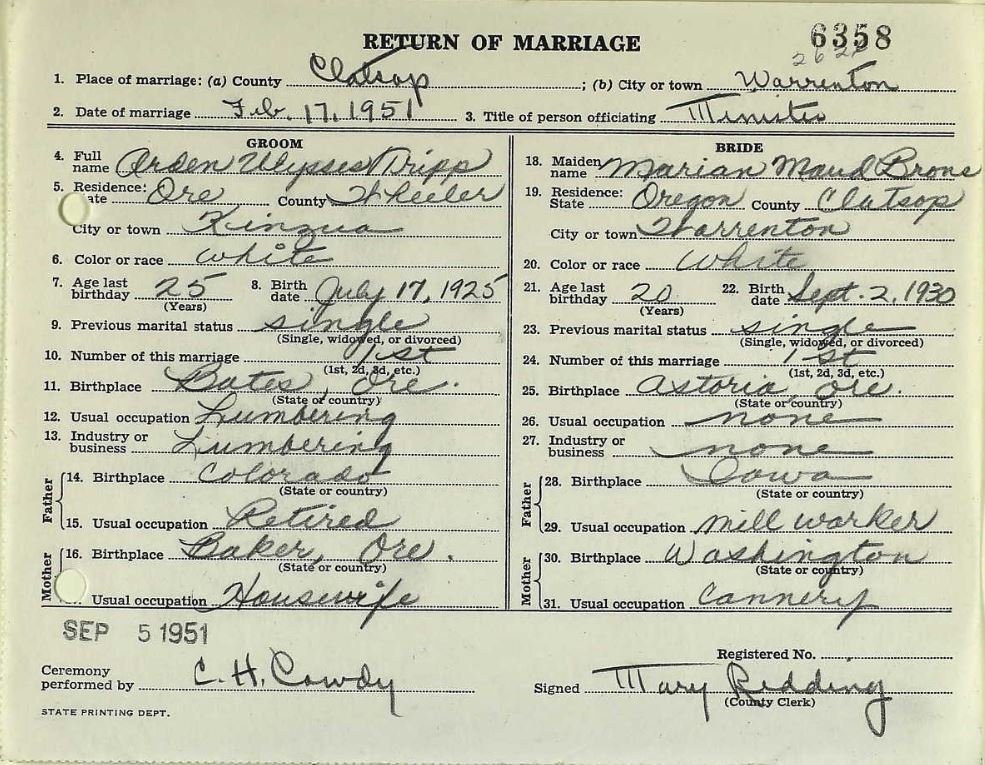 RETURN OF MARRIAGE
6358
1. Place of marriage: (a) County Clatsop ; (b) City or town Warrenton
2. Date of marriage Feb. 17, 1951 3. Title of person officiating Minister
GROOM
4. Full name Orden Ulysses Tripp
5. Residence: ate Ore County Wheeler
City or town Kinzua
6. Color or race white
7. Age last birthday 25 (Years) 8. Birth date July 17, 1925
9. Previous marital status single
(Single, widowed, or divorced)
10. Number of this marriage 1st
(1st, 2d, 3d, etc.)
11. Birthplace Bates, Ore.
(State or country)
12. Usual occupation Lumbering
13. Industry or business Lumbering
Father
14. Birthplace Colorado
(State or country)
15. Usual occupation Retired
Mother
16. Birthplace Baker, Ore.
(State or country)
Usual occupation Housewife
BRIDE
18. Maiden name Marian Maud Brons
19. Residence: State Oregon County Clatsop
City or town Warrenton
20. Color or race White
21. Age last birthday 20 (Years) 22. Birth date Sept. 2, 1930
23. Previous marital status single
(Single, widowed, or divorced)
24. Number of this marriage 1st
(1st, 2d, 3d, etc.)
25. Birthplace Astoria, Ore.
(State or country)
26. Usual occupation none
27. Industry or business none
Father
28. Birthplace Iowa
(State or country)
29. Usual occupation mill worker
Mother
30. Birthplace Washington
(State or country)
31. Usual occupation Cannery
SEP 5 1951
Registered No.
Ceremony performed by C. H. Cowdy
Signed Mary Redding
(County Clerk)
STATE PRINTING DEPT.